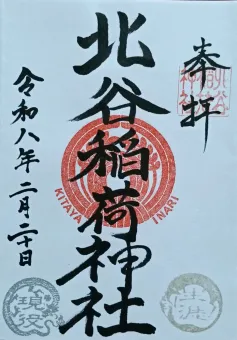 奉拝
北谷稲荷神社
KITAYA INARI
令和八年二月二十日
現役
生涯